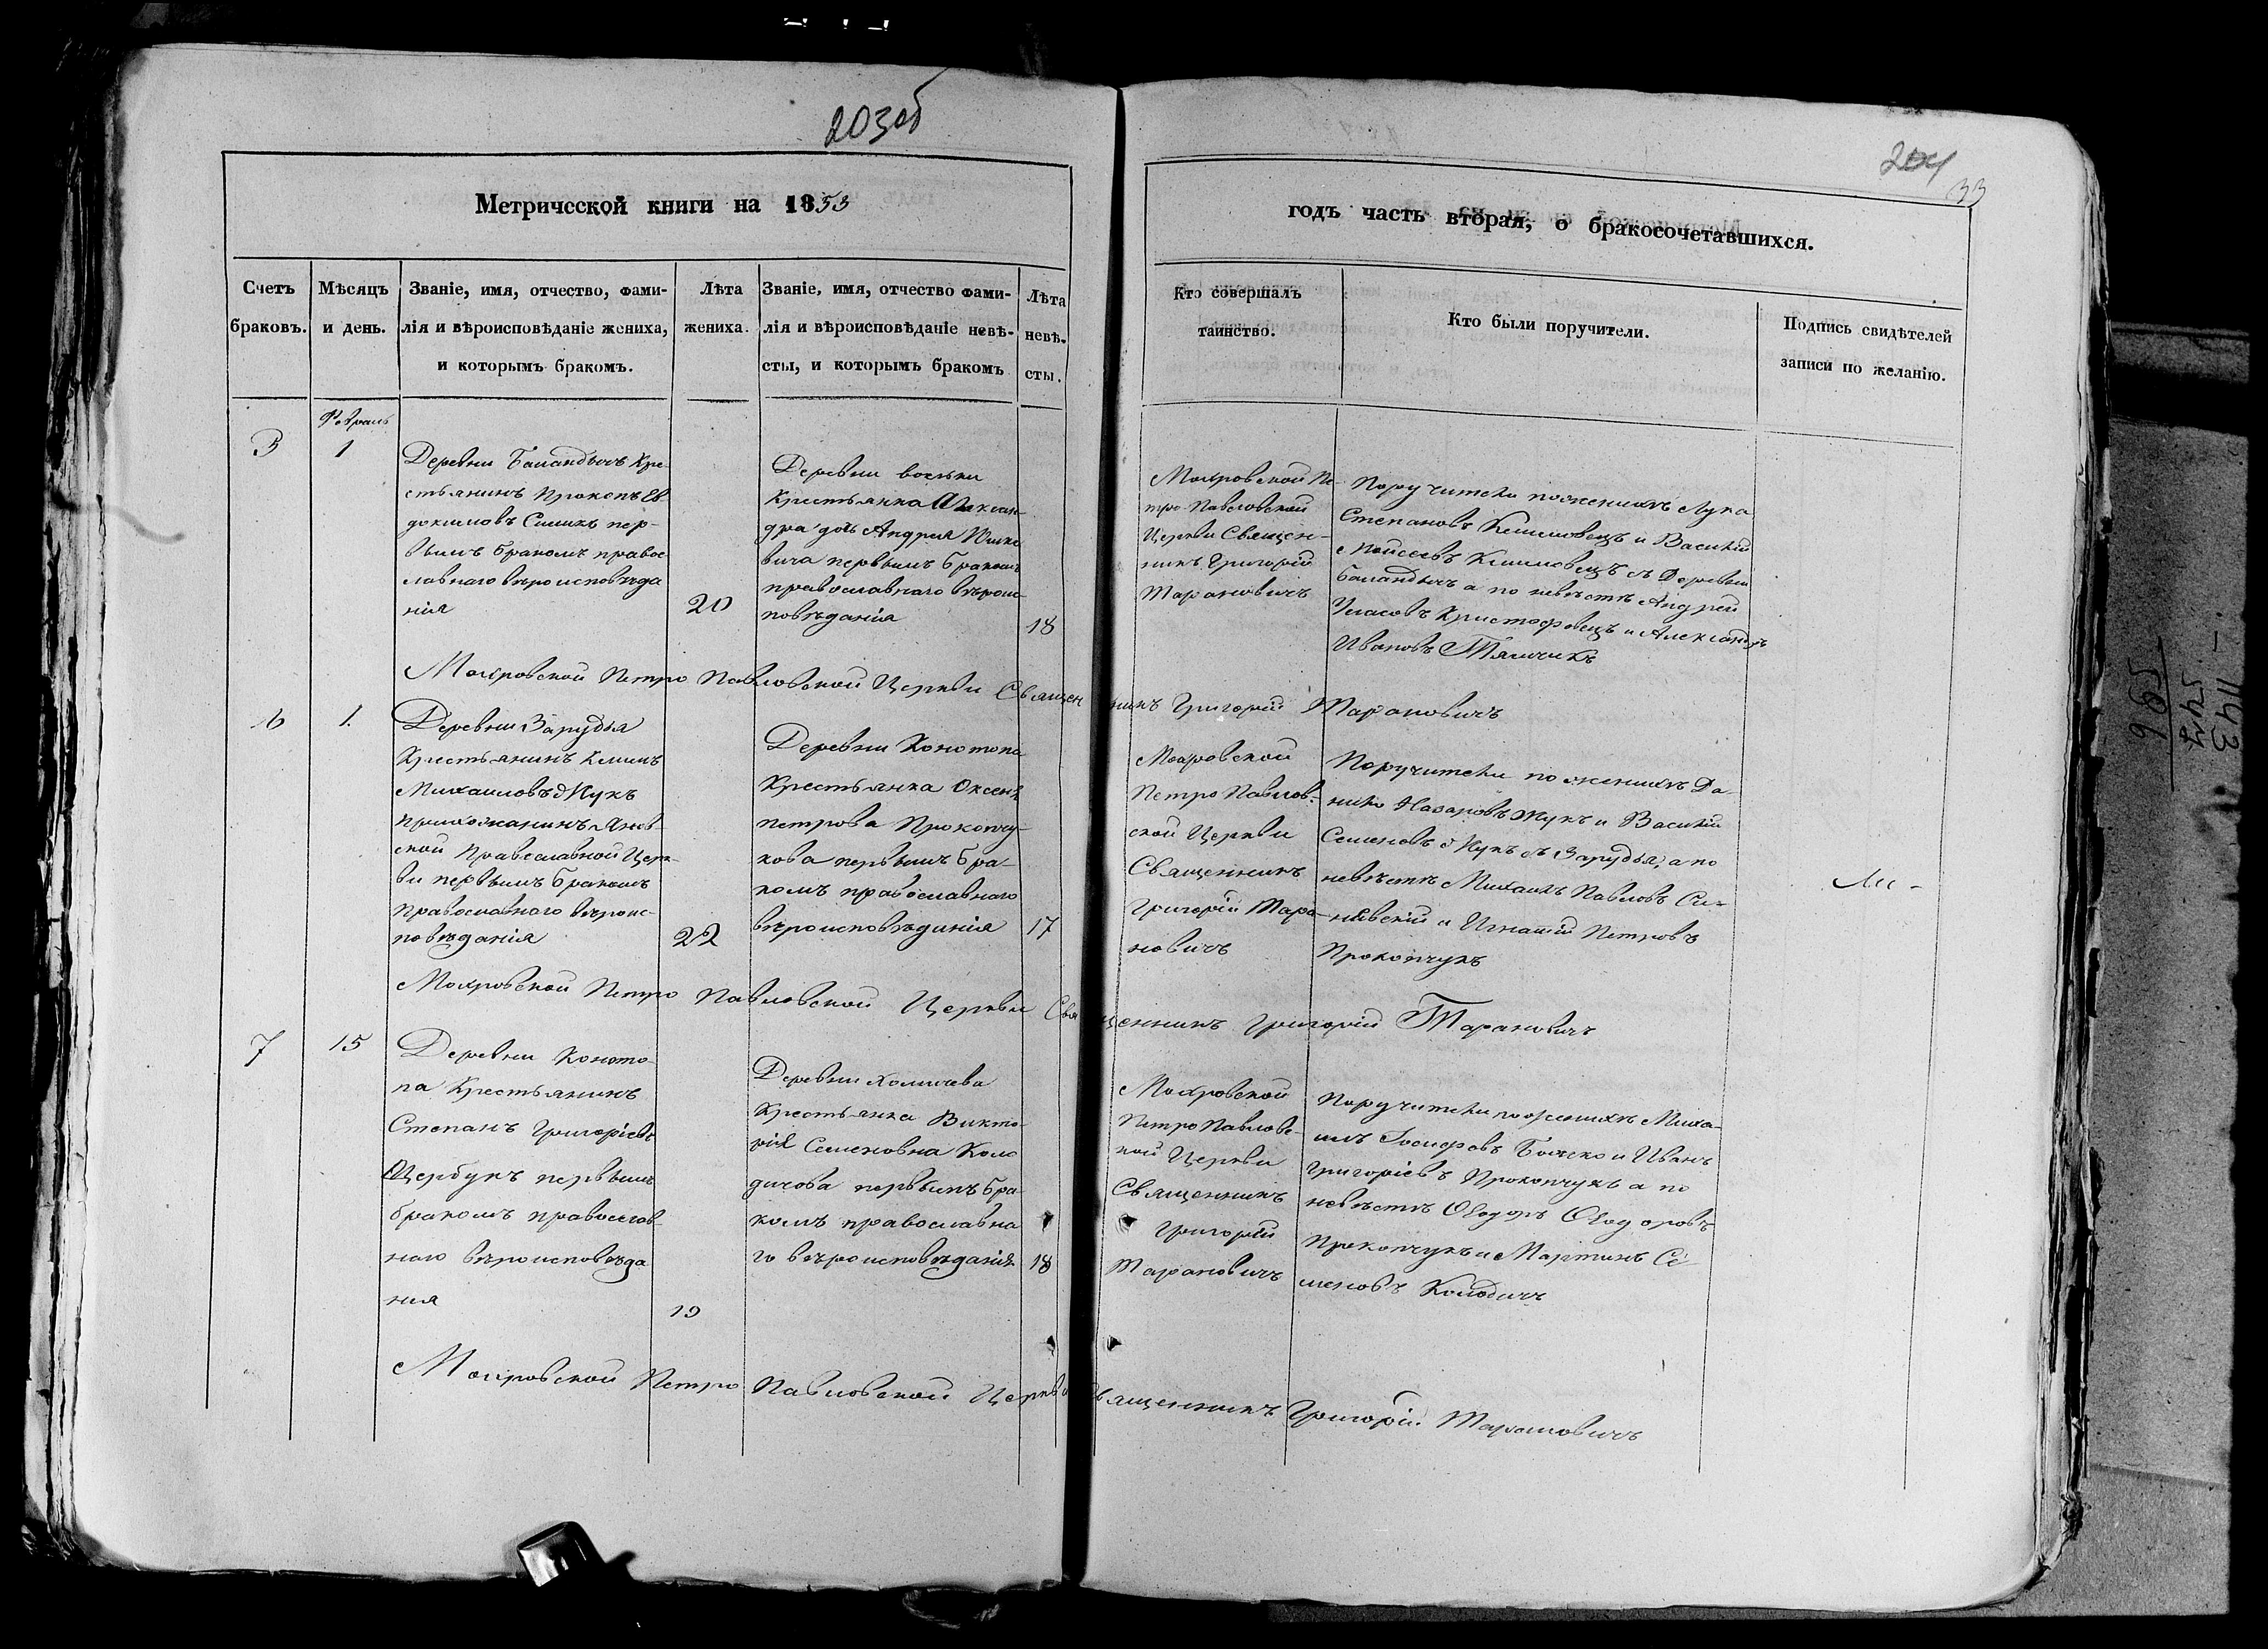 203об
204
33
Метрической книги на 1853
годъ часть вторая, о бракосочетавшихся.
Счетъ браковъ.
Мѣсяцъ и день.
Званіе, имя, отчество, фами-
лія и вѣроисповѣданіе жениха,
и которымъ бракомъ.
Лѣта
жениха.
Званіе, имя, отчество фами-
лія и вѣроисповѣданіе невѣ-
сты, и которымъ бракомъ
Лѣта
невѣ-
сты.
Кто совершалъ
таинство.
Кто были поручители.
Подпись свидѣтелей
записи по желанію.
Февраль
5
1
Деревни Баландычъ Кре-
стьянинъ Прокопъ Ев
докимовъ Симикъ пер-
вымъ бракомъ правос
лавнаго вѣроисповѣда
нія
20
Деревни
Крестьянка Алексан-
дра дочь Андрея
вича первымъ бракомъ
православнаго вѣроис-
повѣданія
18
Мохровской Пе-
тро-Павловской
Церкви Священ-
никъ Григорій
Тарановичъ
Поручители по женихѣ Лука
Степановъ Климовецъ и Василій
Моисеевъ Климовецъ съ Деревни
Баландычъ а по невѣстѣ Андрей
Власовъ Христофовецъ и Александръ
Ивановъ
Мохровской Петро Павловской Церкви Священникъ Григорій Тарановичъ
6
1.
Деревни Зарудья
Крестьянинъ Климъ
Михаиловъ Жукъ
прихожанинъ Янов-
ской Православной Церк-
ви первымъ бракомъ
православнаго вѣроис-
повѣданія
22
Деревни Конотопа
Крестьянка Оксенія
Петрова Прокопчу-
кова первымъ бра-
комъ православнаго
вѣроисповѣданія
17
Мохровской
Петро Павлов-
ской Церкви
Священникъ
Григорій Тара-
новичъ
Поручители по женихѣ Да-
нило Назаровъ Жукъ и Василій
Семеновъ Жукъ съ Зарудья, а по
невѣстѣ Михаилъ Павловъ Си-
невскій и Игнатій Петровъ
Прокопчукъ
Мохровской Петро Павловской Церкви Священникъ Григорій Тарановичъ
7
15
Деревни Коното-
па Крестьянинъ
Степанъ Григоріевъ
Щербукъ первымъ
бракомъ православ-
наго вѣроисповѣда
нія
19
Деревни Хомичева
Крестьянка Викто-
рія Семеновна Коло
дичова первымъ бра-
комъ православна
го вѣроисповѣданія
18
Мохровской
Петро Павловс-
кой Церкви
Священникъ
Григорій
Тарановичъ
Поручители по женихѣ Миха-
илъ Іосифовъ Божко и Иванъ
Григоріевъ Прокопчукъ а по
невѣстѣ Ѳеодоръ Ѳеодоровъ
Прокопчукъ и Мартинъ Се-
меновъ Колодичъ
Мохровской Петро Павловской Церкви Священникъ Григорій Тарановичъ
1143
547
596